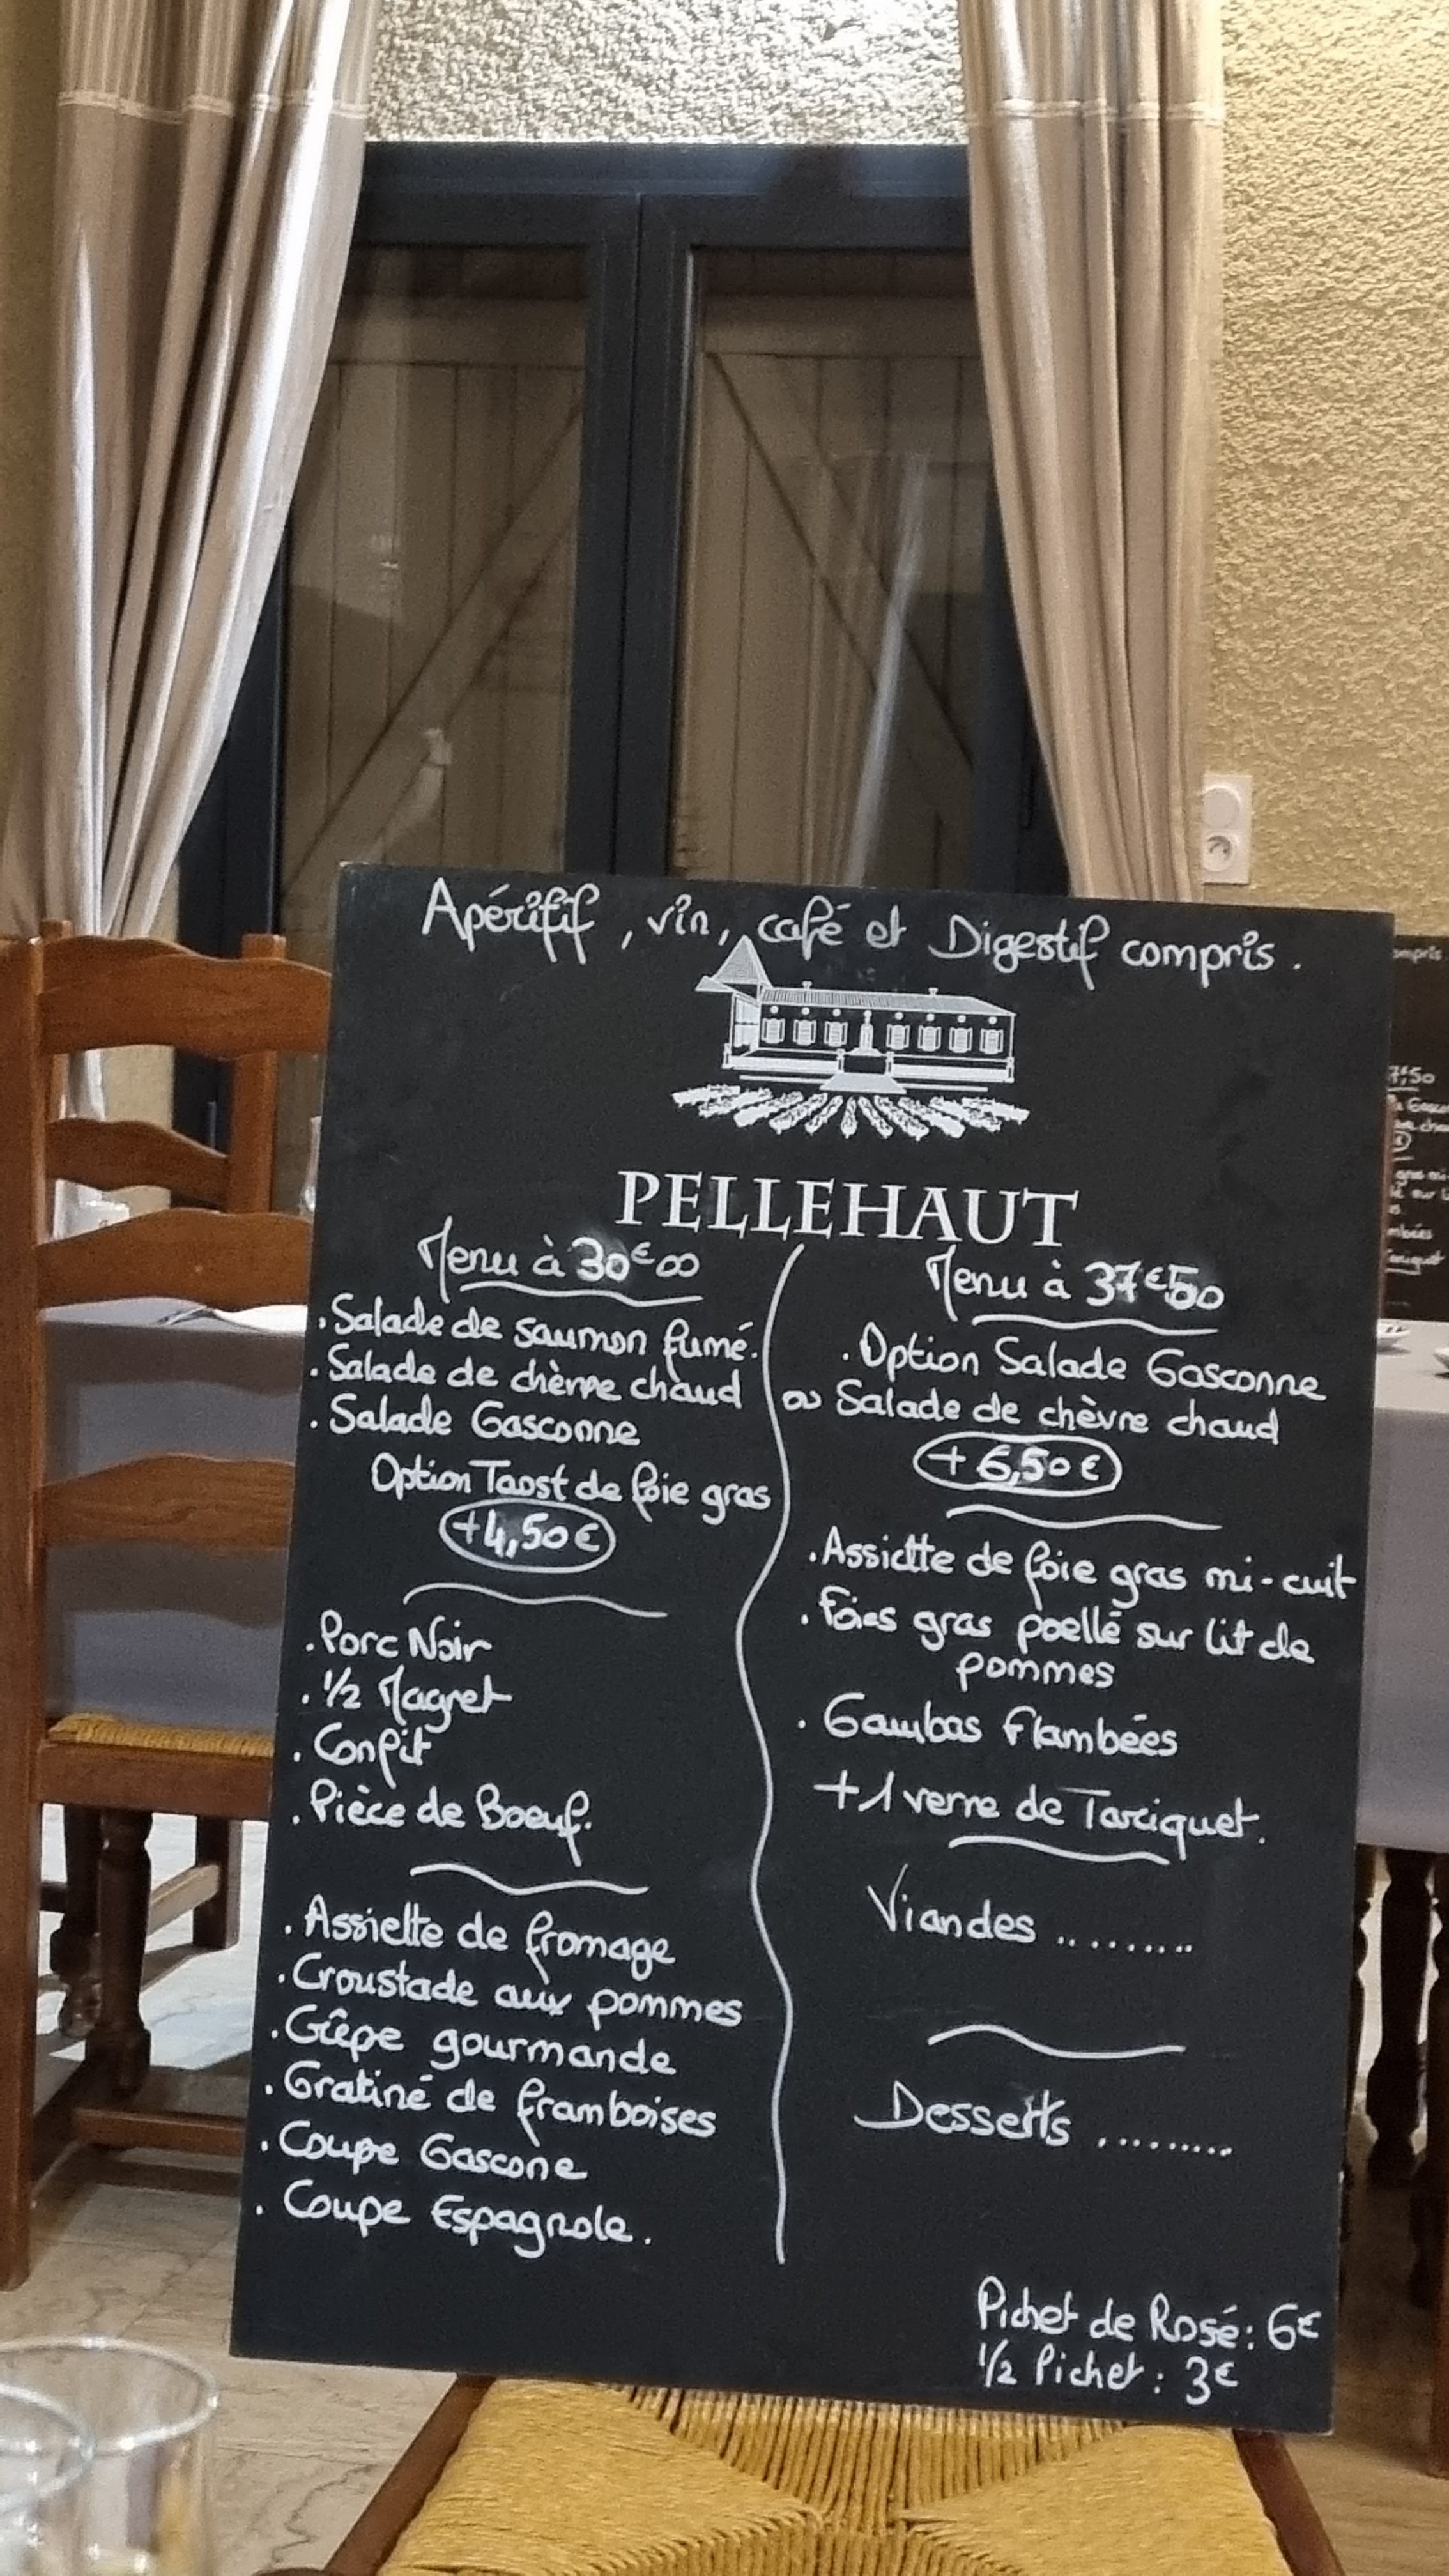 Apéritif, vin, café et Digestif compris.
PELLEHAUT
Menu à 30€00
. Salade de saumon fumé.
. Salade de chèvre chaud
. Salade Gasconne
Option Taost de foie gras
+4,50€
. Porc Noir
. 1/2 Magret
. Confit
. Pièce de Boeuf.
. Assiette de fromage
. Croustade aux pommes
. Crêpe gourmande
. Gratiné de framboises
. Coupe Gascone
. Coupe Espagnole.
Menu à 37€50
. Option Salade Gasconne
ou Salade de chèvre chaud
+ 6,50€
. Assiette de foie gras mi-cuit
. Foies gras poellé sur lit de
pommes
. Gambas Flambées
+1 verre de Tariquet.
Viandes .........
Desserts .........
Pichet de Rosé: 6€
1/2 Pichet: 3€
ompris
7€50